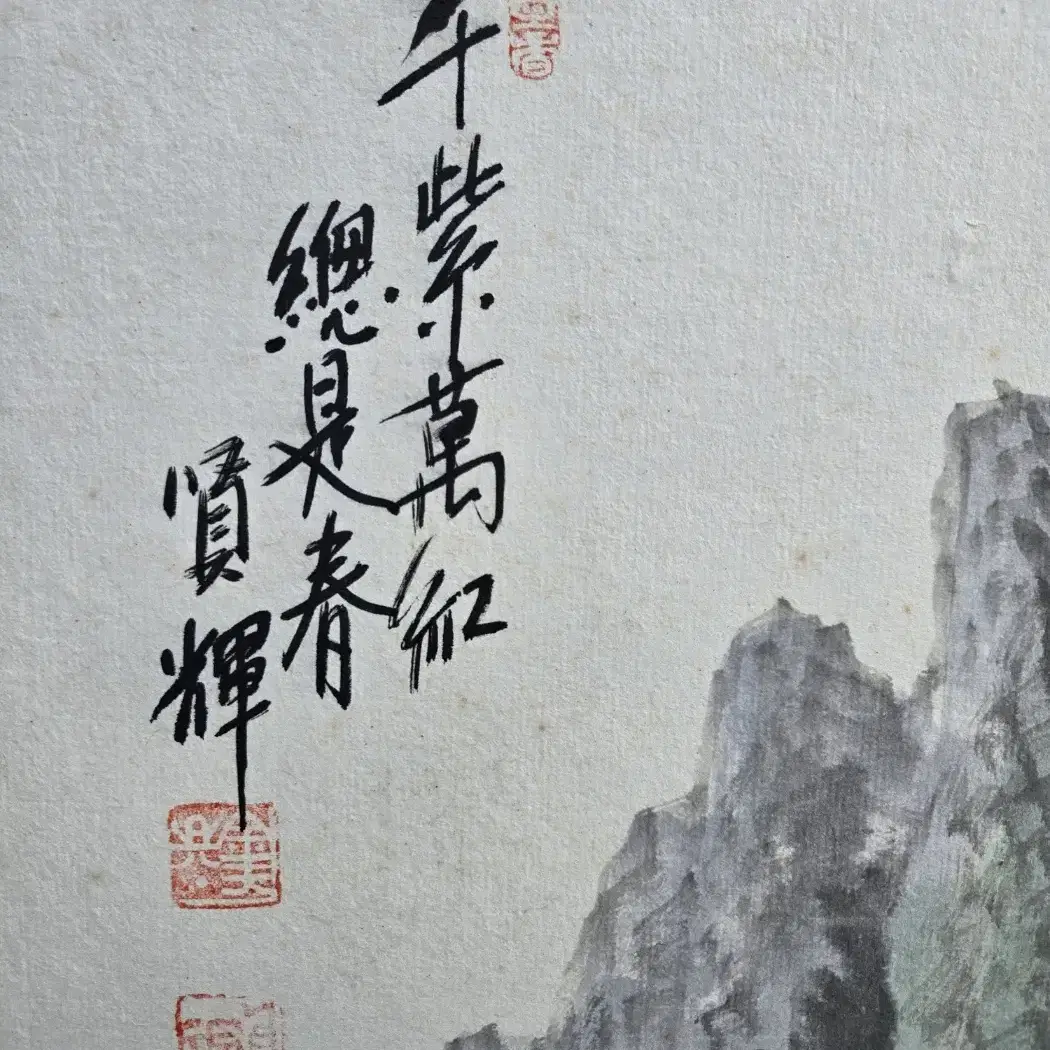 千紫萬紅
總是春
賢輝